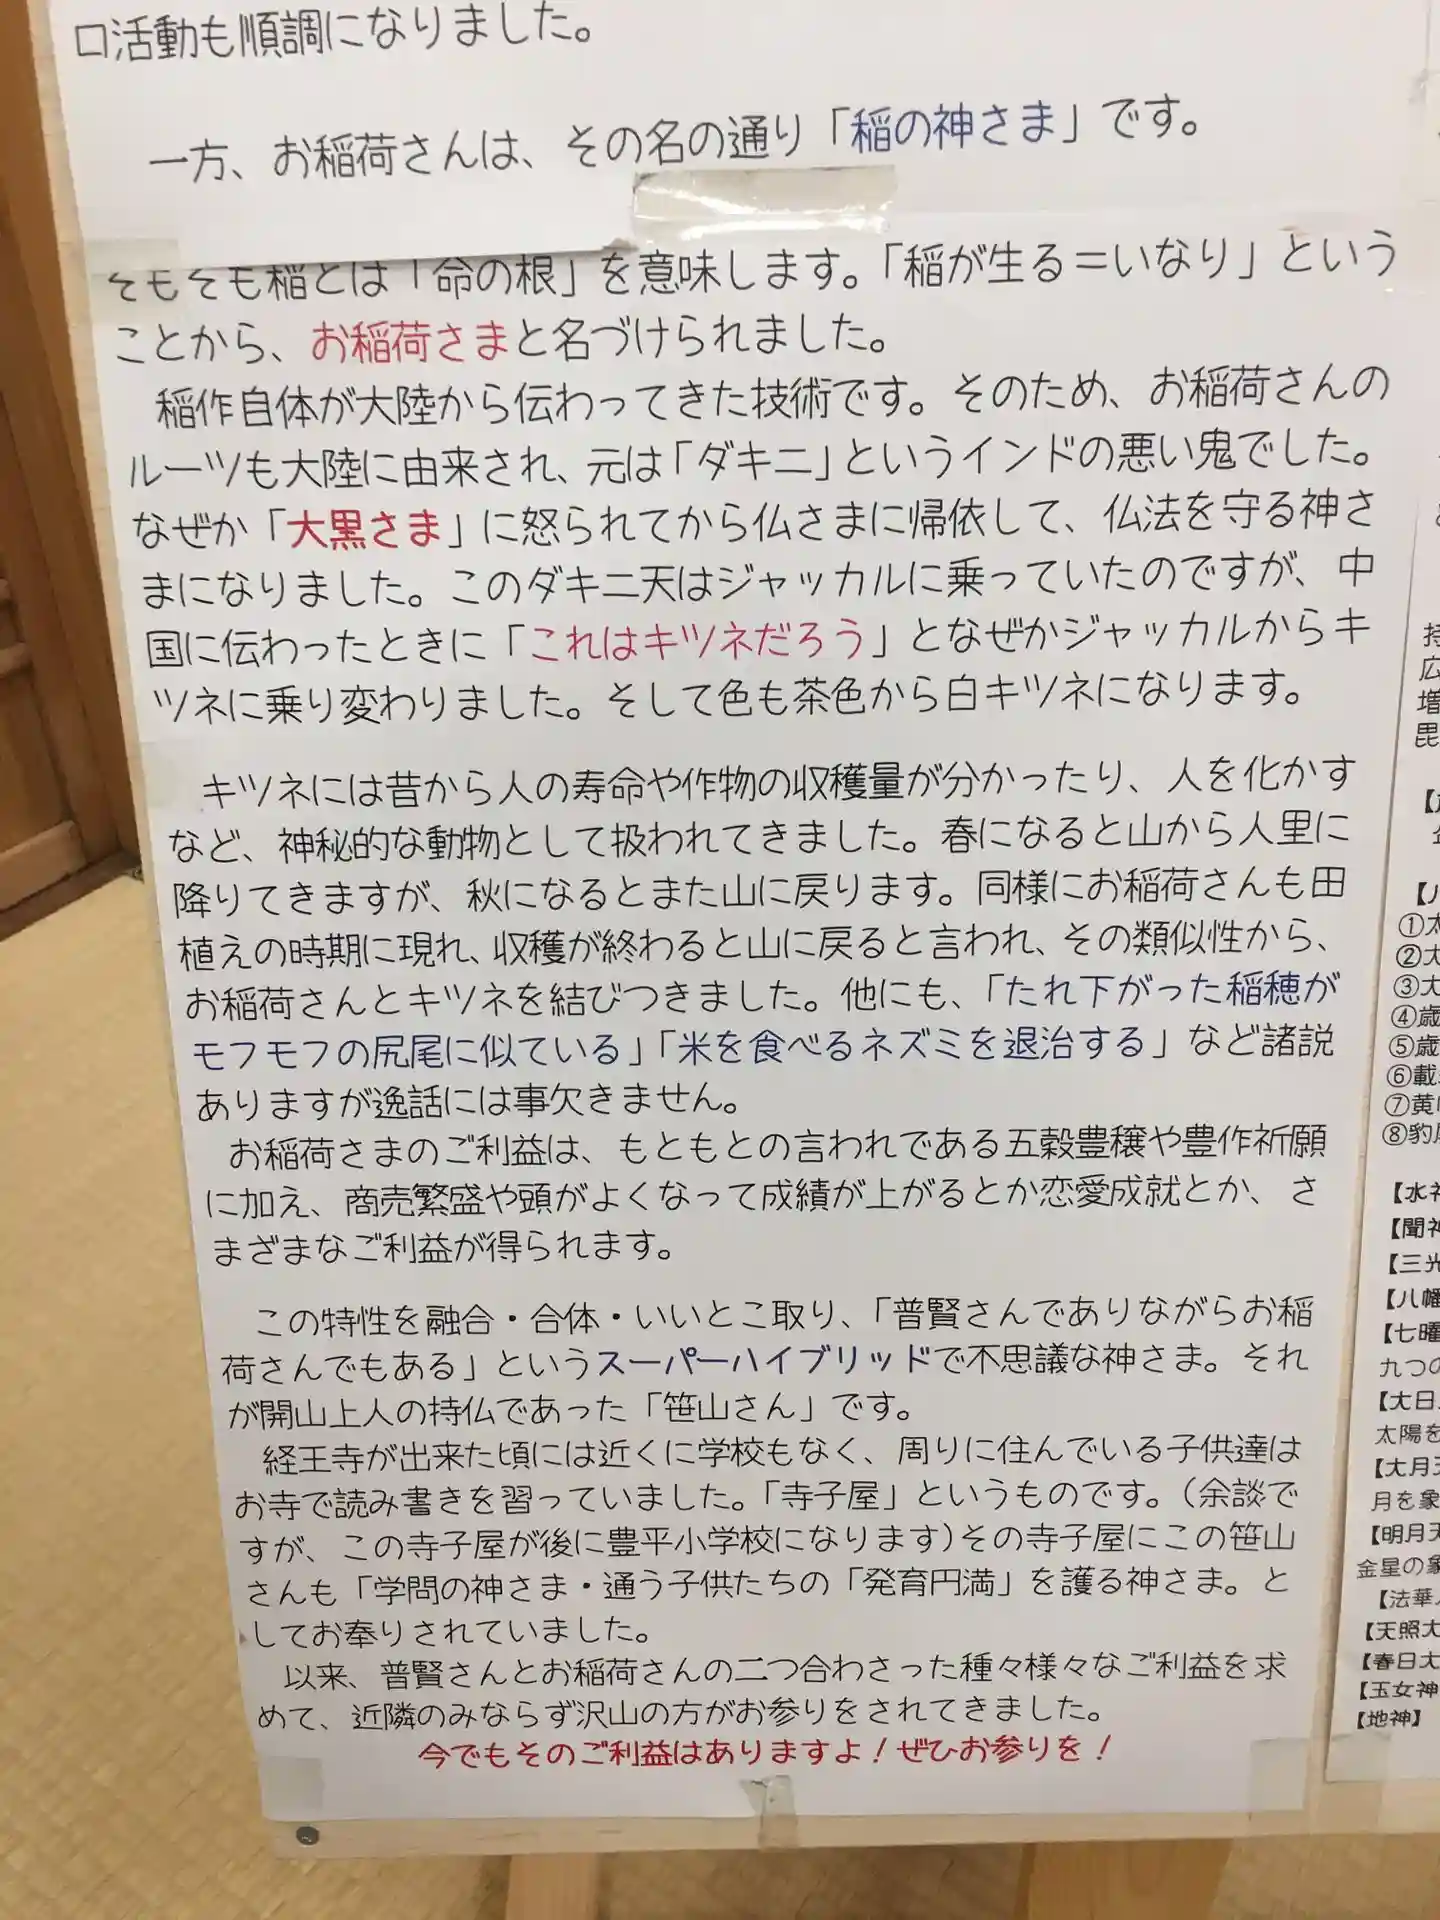 口活動も順調になりました。
一方、お稲荷さんは、その名の通り「稲の神さま」です。
そもそも稲とは「命の根」を意味します。「稲が生る＝いなり」という
ことから、お稲荷さまと名づけられました。
稲作自体が大陸から伝わってきた技術です。そのため、お稲荷さんの
ルーツも大陸に由来され、元は「ダキニ」というインドの悪い鬼でした。
なぜか「大黒さま」に怒られてから仏さまに帰依して、仏法を守る神さ
まになりました。このダキニ天はジャッカルに乗っていたのですが、中
国に伝わったときに「これはキツネだろう」となぜかジャッカルからキ
ツネに乗り変わりました。そして色も茶色から白キツネになります。
キツネには昔から人の寿命や作物の収穫量が分かったり、人を化かす
など、神秘的な動物として扱われてきました。春になると山から人里に
降りてきますが、秋になるとまた山に戻ります。同様にお稲荷さんも田
植えの時期に現れ、収穫が終わると山に戻ると言われ、その類似性から、
お稲荷さんとキツネを結びつきました。他にも、「たれ下がった稲穂が
モフモフの尻尾に似ている」「米を食べるネズミを退治する」など諸説
ありますが逸話には事欠きません。
お稲荷さまのご利益は、もともとの言われである五穀豊穣や豊作祈願
に加え、商売繁盛や頭がよくなって成績が上がるとか恋愛成就とか、さ
まざまなご利益が得られます。
この特性を融合・合体・いいとこ取り、「普賢さんでありながらお稲
荷さんでもある」というスーパーハイブリッドで不思議な神さま。それ
が開山上人の持仏であった「笹山さん」です。
経王寺が出来た頃には近くに学校もなく、周りに住んでいる子供達は
お寺で読み書きを習っていました。「寺子屋」というものです。（余談で
すが、この寺子屋が後に豊平小学校になります）その寺子屋にこの笹山
さんも「学問の神さま・通う子供たちの「発育円満」を護る神さま。と
してお奉りされていました。
以来、普賢さんとお稲荷さんの二つ合わさった種々様々なご利益を求
めて、近隣のみならず沢山の方がお参りをされてきました。
今でもそのご利益はありますよ！ぜひお参りを！
持
広
増
毘
①太
②大
③大
④歳
⑤歳
⑥載
⑦黄
⑧豹
【水神
【聞神
【三光
【八幡
【七曜
九つの
【大日
太陽を
【大月天
月を象
【明月天
金星の象
【法華
【天照大
【春日大
【玉女神
【地神】